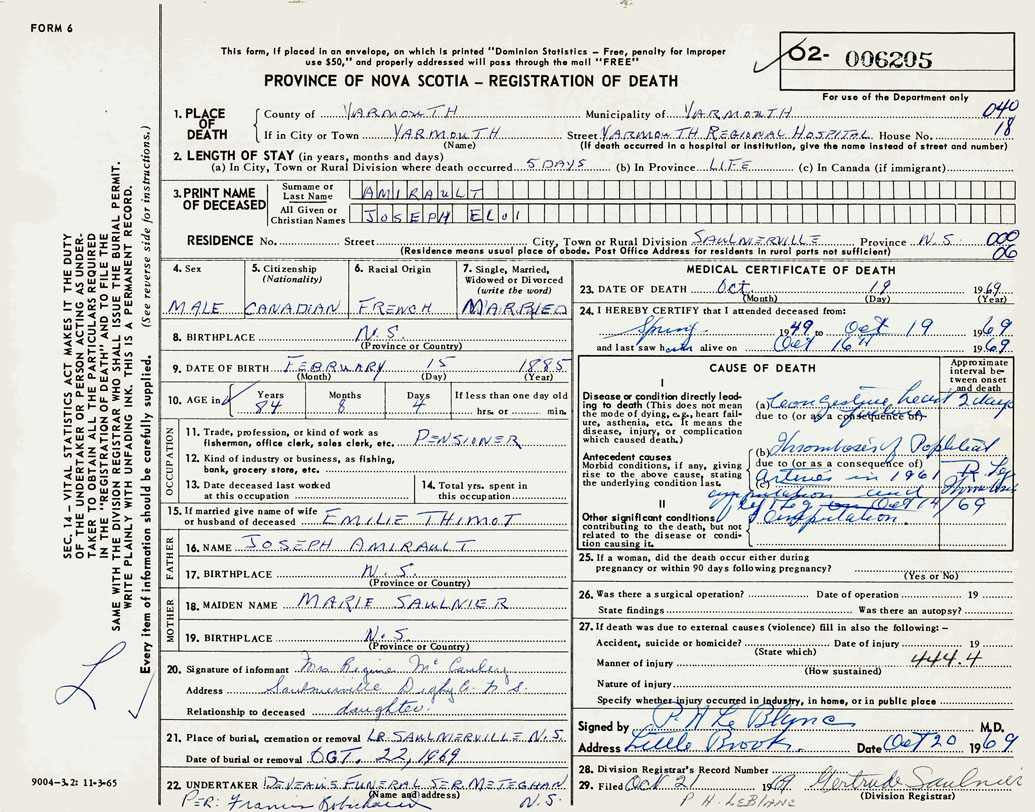 FORM 6
This form, if placed in an envelope, on which is printed "Dominion Statistics – Free, penalty for improper
use $50," and properly addressed will pass through the mail "FREE"
PROVINCE OF NOVA SCOTIA – REGISTRATION OF DEATH
02- 006205
For use of the Department only
1. PLACE OF DEATH
County of YARMOUTH Municipality of YARMOUTH 040
If in City or Town YARMOUTH Street YARMOUTH REGIONAL HOSPITAL House No. 18
(Name) (If death occurred in a hospital or institution, give the name instead of street and number)
2. LENGTH OF STAY (in years, months and days)
(a) In City, Town or Rural Division where death occurred 5 DAYS (b) In Province LIFE (c) In Canada (if immigrant)
3. PRINT NAME OF DECEASED
Surname or Last Name AMIRAULT
All Given or Christian Names JOSEPH ELOI
RESIDENCE No. Street City, Town or Rural Division SAULNIERVILLE Province N.S. 000
(Residence means usual place of abode. Post Office Address for residents in rural parts not sufficient) 06
4. Sex MALE
5. Citizenship (Nationality) CANADIAN
6. Racial Origin FRENCH
7. Single, Married, Widowed or Divorced (write the word) MARRIED
8. BIRTHPLACE N.S.
(Province or Country)
9. DATE OF BIRTH FEBRUARY 15 1885
(Month) (Day) (Year)
10. AGE in Years Months Days If less than one day old
84 8 4 hrs. or min.
OCCUPATION
11. Trade, profession, or kind of work as
fisherman, office clerk, sales clerk, etc. PENSIONER
12. Kind of industry or business, as fishing,
bank, grocery store, etc.
13. Date deceased last worked
at this occupation
14. Total yrs. spent in
this occupation
15. If married give name of wife
or husband of deceased EMILIE THIMOT
FATHER
16. NAME JOSEPH AMIRAULT
17. BIRTHPLACE N.S.
(Province or Country)
MOTHER
18. MAIDEN NAME MARIE SAULNIER
19. BIRTHPLACE N.S.
(Province or Country)
20. Signature of informant Mrs Regina McCauley
Address Saulnierville Digby C. N.S.
Relationship to deceased daughter.
21. Place of burial, cremation or removal LR. SAULNIERVILLE N.S.
Date of burial or removal OCT. 22, 1969
22. UNDERTAKER DEVEAU'S FUNERAL SER. METEGHAN
(Name and address) N.S.
PER: Francis Robichaud
MEDICAL CERTIFICATE OF DEATH
23. DATE OF DEATH Oct 19 1969
(Month) (Day) (Year)
24. I HEREBY CERTIFY that I attended deceased from:
Spring 1949 to Oct 19 1969
and last saw him alive on Oct 16th 1969
CAUSE OF DEATH
Approximate interval between onset and death
I
Disease or condition directly leading to death (This does not mean
the mode of dying, e.g., heart failure, asthenia, etc. It means the
disease, injury, or complication
which caused death.)
(a) Congestive heart failure 2 days
due to (or as a consequence of)
Antecedent causes
Morbid conditions, if any, giving
rise to the above cause, stating
the underlying condition last.
(b) Thrombosis of Popliteal
due to (or as a consequence of)
(c) Arteries in 1961 R. Leg
amputation and Thrombosis
of left leg on Oct 14/69
amputation.
II
Other significant conditions
contributing to the death, but not
related to the disease or condition causing it.
25. If a woman, did the death occur either during
pregnancy or within 90 days following pregnancy?
(Yes or No)
26. Was there a surgical operation? Date of operation 19
State findings Was there an autopsy?
27. If death was due to external causes (violence) fill in also the following: –
Accident, suicide or homicide? Date of injury 19
(State which) 444.4
Manner of injury
(How sustained)
Nature of injury
Specify whether injury occurred in Industry, in home, or in public place
Signed by P. H. Le Blanc M.D.
Address Little Brook. Date Oct 20 1969
28. Division Registrar's Record Number
29. Filed Oct 21 1969 Gertrude Saulnier
(Division Registrar)
P. H. LEBLANC
SEC. 14 – VITAL STATISTICS ACT MAKES IT THE DUTY
OF THE UNDERTAKER OR PERSON ACTING AS UNDER-
TAKER TO OBTAIN ALL THE PARTICULARS REQUIRED
IN THE "REGISTRATION OF DEATH" AND TO FILE THE
SAME WITH THE DIVISION REGISTRAR WHO SHALL ISSUE THE BURIAL PERMIT.
WRITE PLAINLY WITH UNFADING INK. THIS IS A PERMANENT RECORD.
Every item of information should be carefully supplied. (See reverse side for instructions.)
9004–3.2: 11-3-65